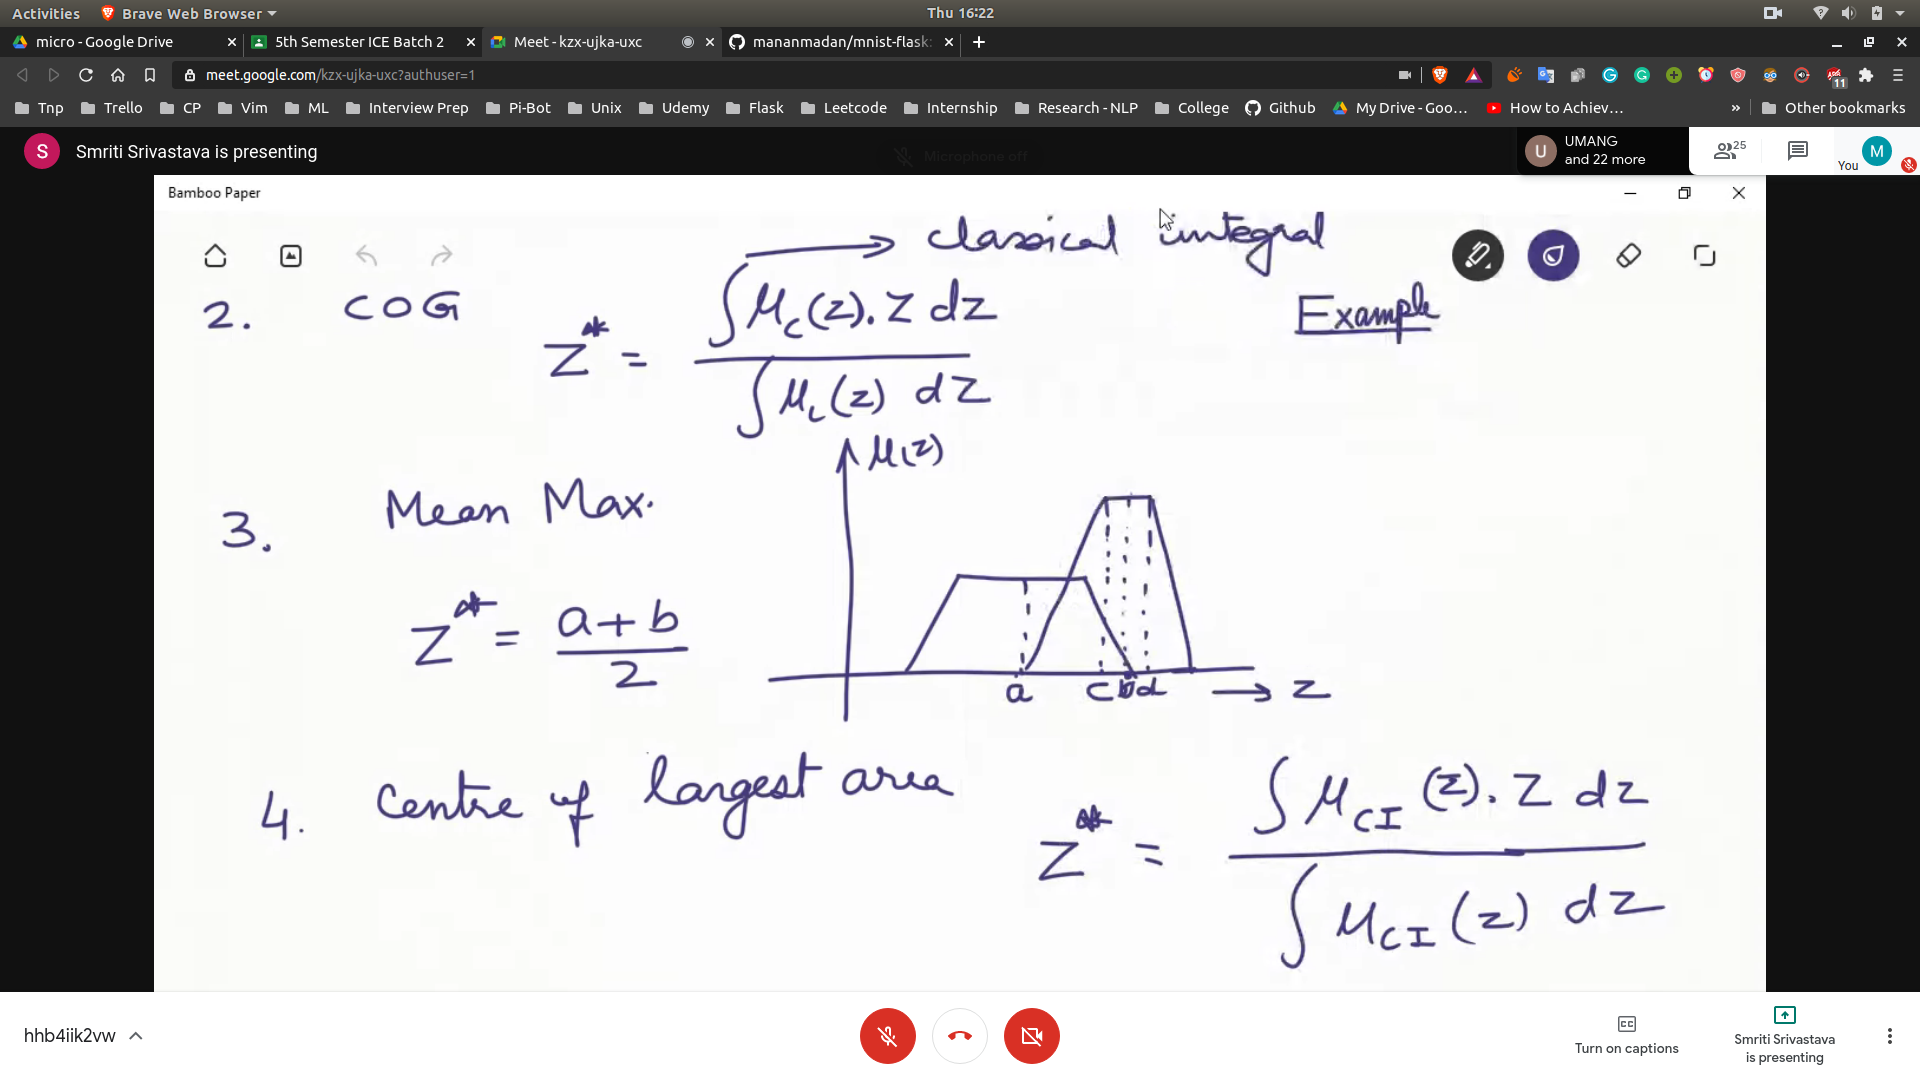 Activities Brave Web Browser Thu 16:22
micro - Google Drive 5th Semester ICE Batch 2 Meet - kzx-ujka-uxc mananmadan/mnist-flask:
meet.google.com/kzx-ujka-uxc?authuser=1 11
Tnp Trello CP Vim ML Interview Prep Pi-Bot Unix Udemy Flask Leetcode Internship Research - NLP College Github My Drive - Goo... How to Achiev... » Other bookmarks
S Smriti Srivastava is presenting Microphone off U UMANG and 22 more 25 You M
Bamboo Paper
→ classical integral
2. COG Z* = ∫μc(z). Z dz / ∫μc(z) dz
Example
μ(z)
3. Mean Max.
Z* = a+b / 2
a c b d → z
4. Centre of largest area
Z* = ∫μCI(z). Z dz / ∫μCI(z) dz
hhb4iik2vw
Turn on captions
Smriti Srivastava
is presenting